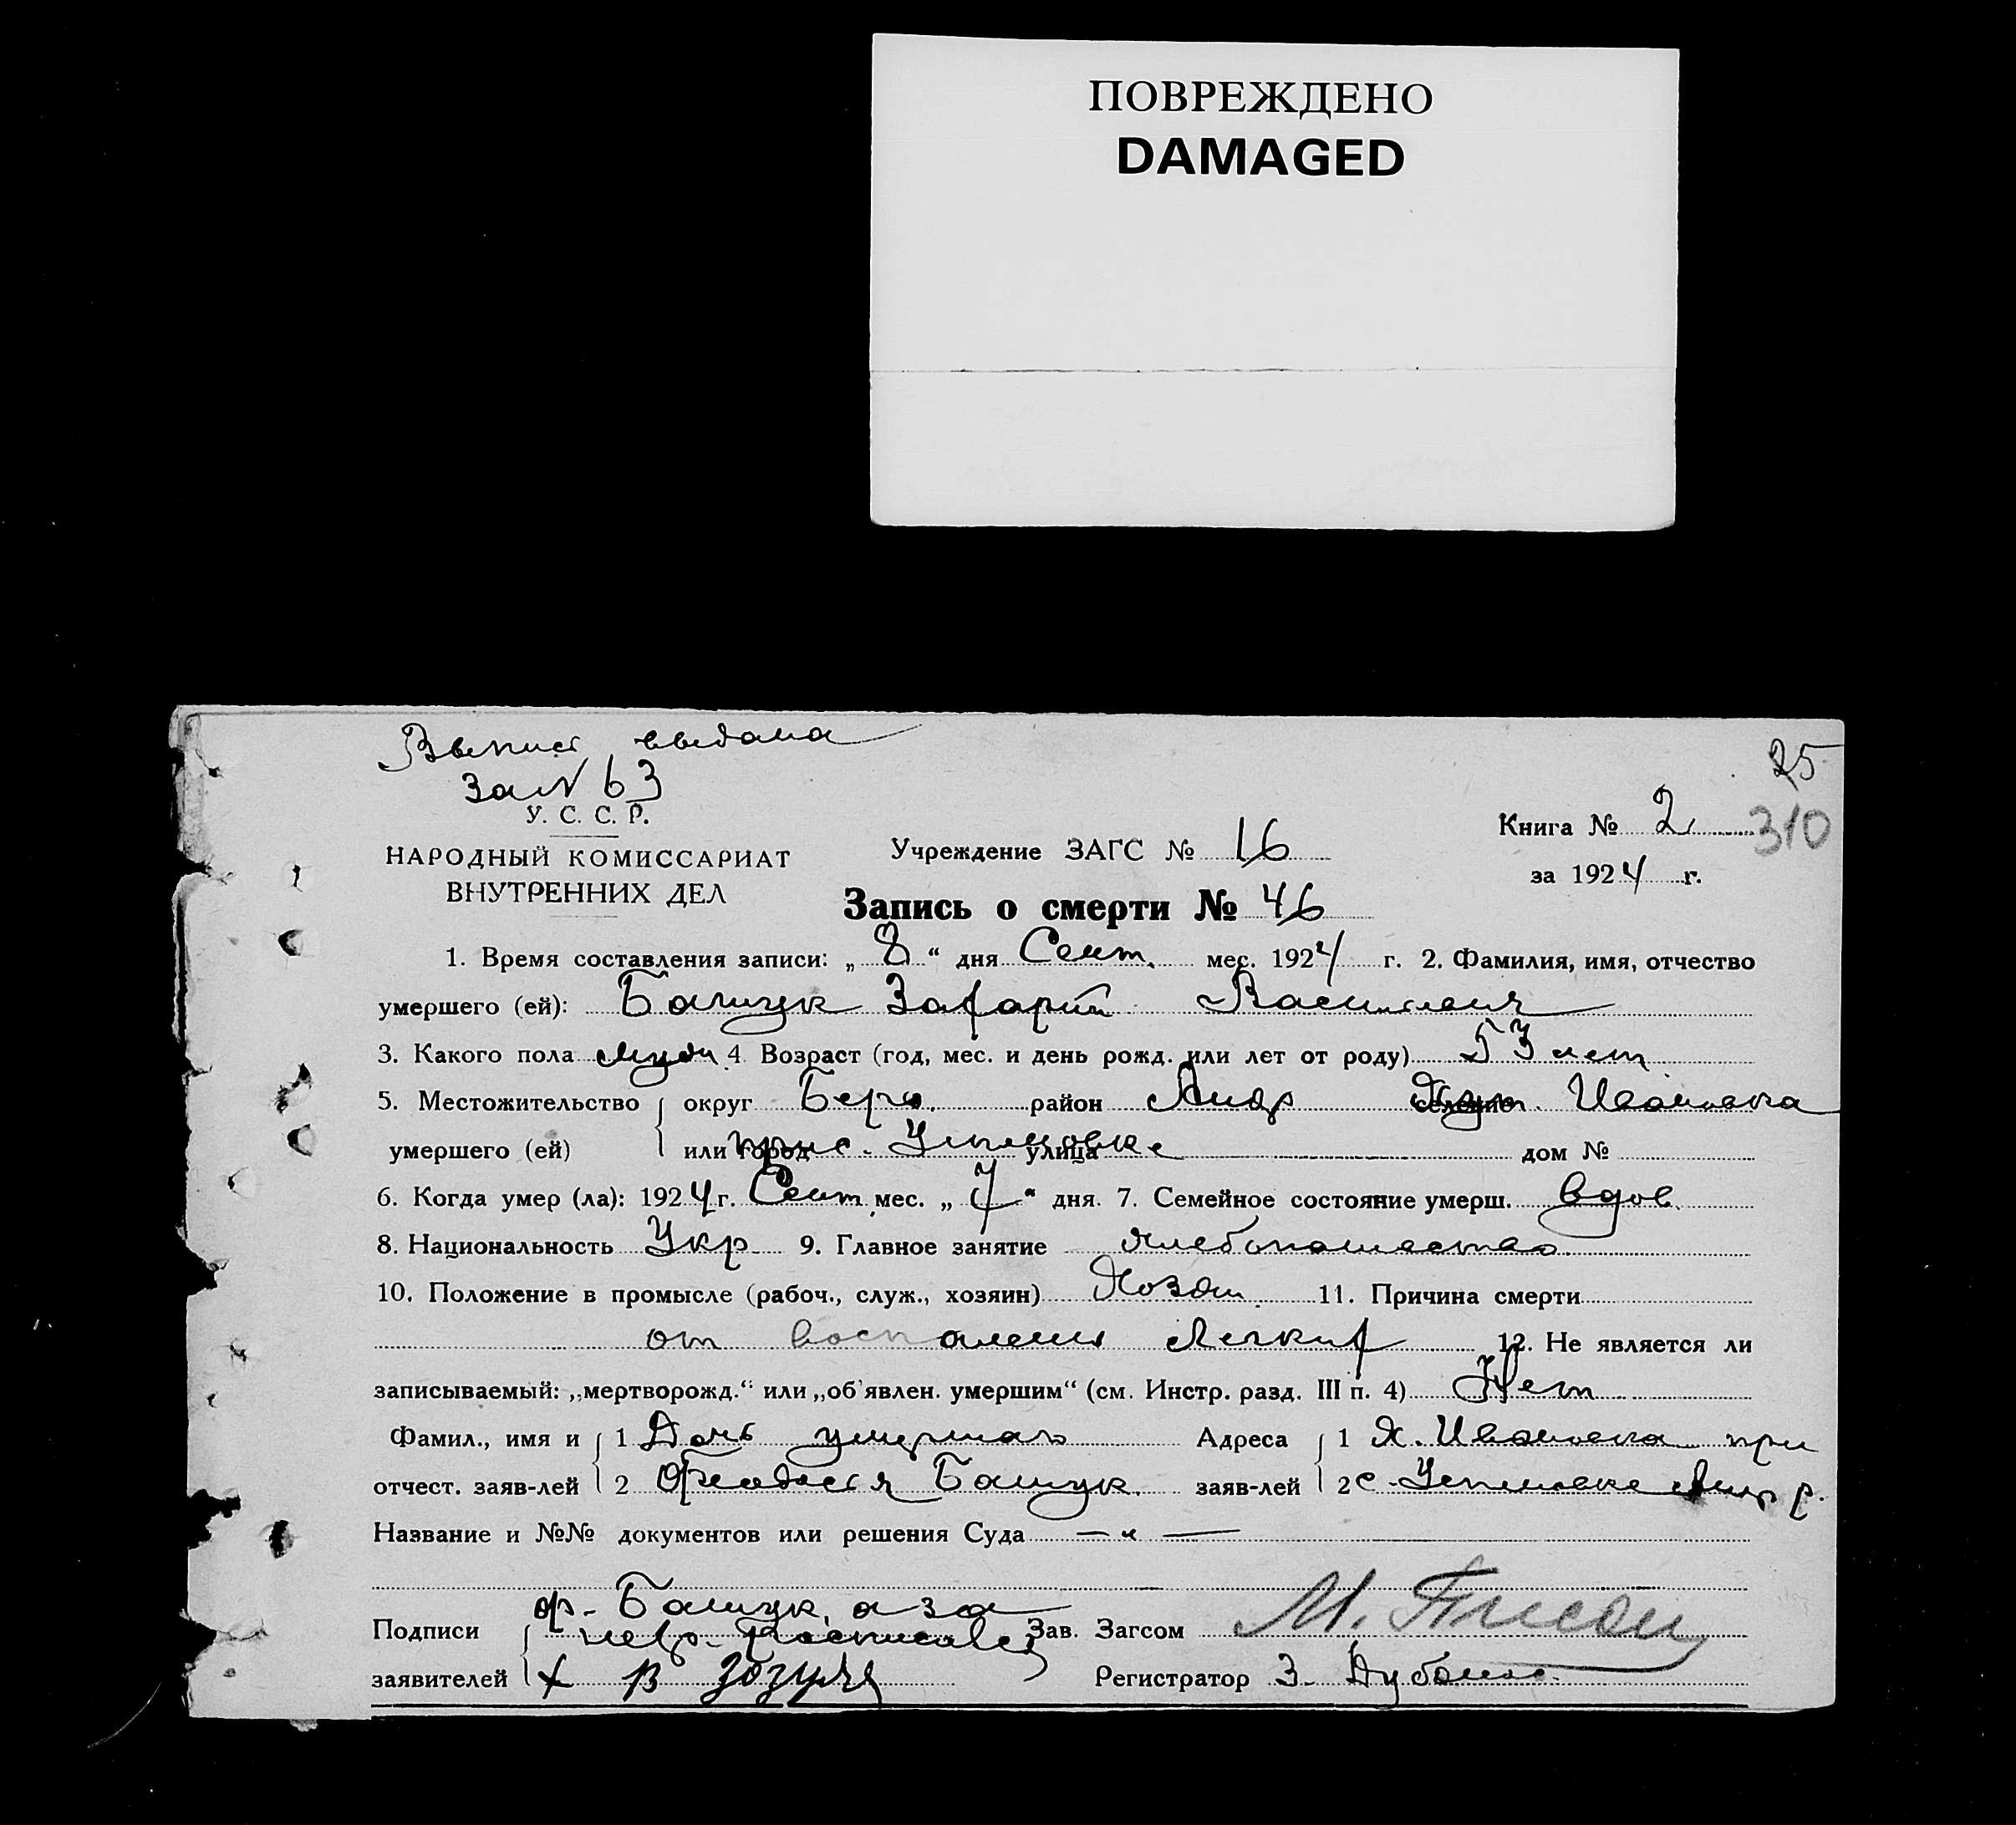 ПОВРЕЖДЕНО
DAMAGED
Выпись выдана
за № 63
У. С. С. Р.
НАРОДНЫЙ КОМИССАРИАТ
ВНУТРЕННИХ ДЕЛ
Учреждение ЗАГС № 16
25
Книга № 2
310
за 1924 г.
Запись о смерти № 46
1. Время составления записи: „ 8 “ дня Сент. мес. 1924 г. 2. Фамилия, имя, отчество
умершего (ей): Башук Захарий Васильевич
3. Какого пола мужч 4. Возраст (год, мес. и день рожд. или лет от роду) 53 лет
5. Местожительство округ район селение Ивановка
умершего (ей) или город при с. улица дом №
6. Когда умер (ла): 1924 г. Сент мес. „ 7 “ дня. 7. Семейное состояние умерш. вдов.
8. Национальность Укр 9. Главное занятие хлебопашество
10. Положение в промысле (рабоч., служ., хозяин) Хозяин 11. Причина смерти
от воспаления легких 12. Не является ли
записываемый: „мертворожд.“ или „об'явлен. умершим“ (см. Инстр. разд. III п. 4) Нет
Фамил., имя и 1 Дочь умершаго Адреса 1 х. Ивановка при
отчест. заяв-лей 2 Феодосия Башук. заяв-лей 2 с. р.
Название и №№ документов или решения Суда — „ —
Ф. Башук, а за
Подписи негр. Зав. Загсом М.
заявителей + В Зозуля Регистратор З.